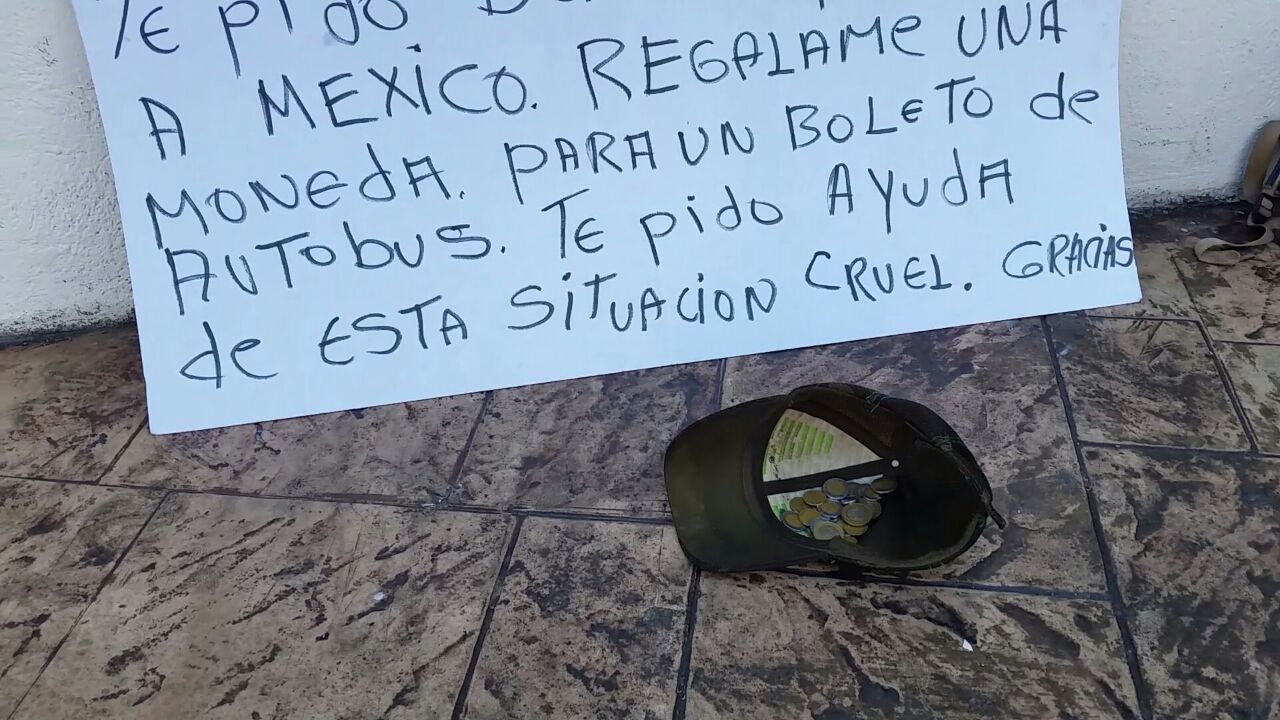 TE pido
A MEXiCO. REGALAME UNA
MONEdA. PARA UN BOLETO de
AUTObUS. TE pido AYUdA
de ESTA SiTUACiON CRUEL. GRACiAS